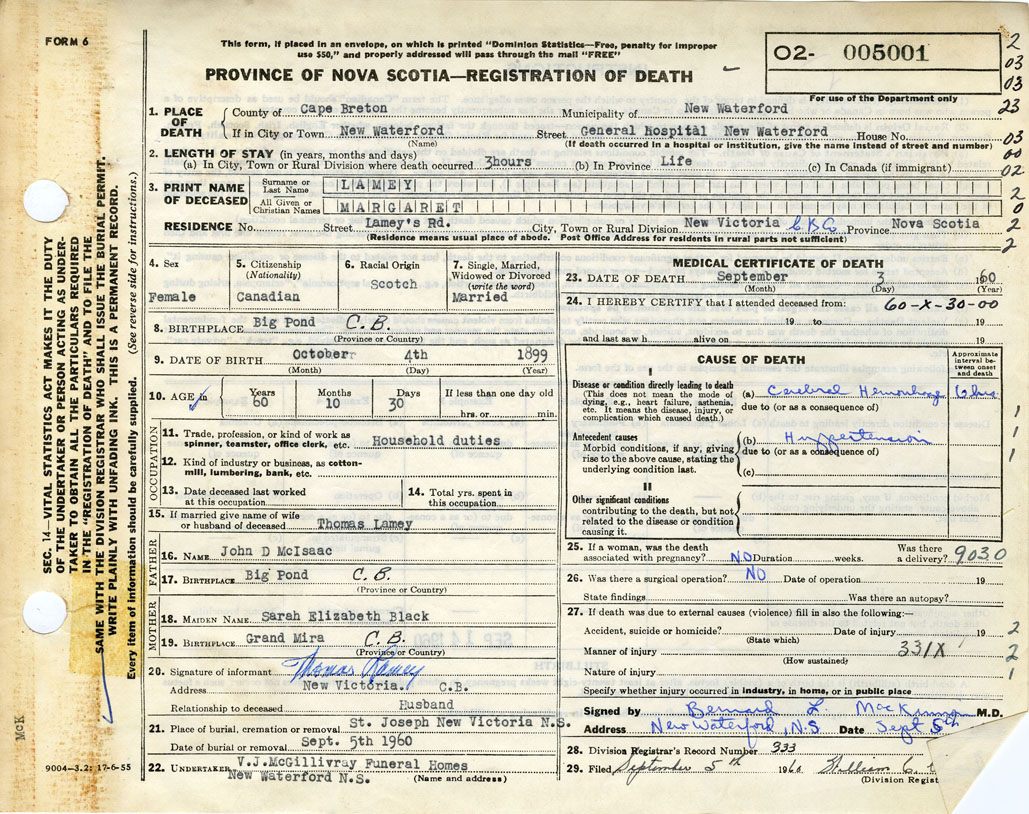 FORM 6
This form, if placed in an envelope, on which is printed "Dominion Statistics—Free, penalty for improper
use $50," and properly addressed will pass through the mail "FREE"
PROVINCE OF NOVA SCOTIA—REGISTRATION OF DEATH
O2- 005001
For use of the Department only
2
03
03
23
03
00
02
2
0
2
2
1. PLACE OF DEATH
County of Cape Breton Municipality of New Waterford
If in City or Town New Waterford Street General hospital New Waterford House No.
(Name) (If death occurred in a hospital or institution, give the name instead of street and number)
2. LENGTH OF STAY (in years, months and days)
(a) In City, Town or Rural Division where death occurred 3hours (b) In Province Life (c) In Canada (if immigrant)
3. PRINT NAME OF DECEASED
Surname or Last Name LAMEY
All Given or Christian Names MARGARET
RESIDENCE No. Street Lamey's Rd. City, Town or Rural Division New Victoria C.B.Co Province Nova Scotia
(Residence means usual place of abode. Post Office Address for residents in rural parts not sufficient)
4. Sex
Female
5. Citizenship
(Nationality)
Canadian
6. Racial Origin
Scotch
7. Single, Married,
Widowed or Divorced
(write the word)
Married
8. BIRTHPLACE Big Pond C.B.
(Province or Country)
9. DATE OF BIRTH October 4th 1899
(Month) (Day) (Year)
10. AGE in
Years Months Days If less than one day old
60 10 30
hrs. or min.
OCCUPATION
11. Trade, profession, or kind of work as
spinner, teamster, office clerk, etc. Household duties
12. Kind of industry or business, as cotton-
mill, lumbering, bank, etc.
13. Date deceased last worked
at this occupation
14. Total yrs. spent in
this occupation
15. If married give name of wife
or husband of deceased Thomas Lamey
FATHER
16. NAME John D McIsaac
17. BIRTHPLACE Big Pond C.B.
(Province or Country)
MOTHER
18. MAIDEN NAME Sarah Elizabeth Black
19. BIRTHPLACE Grand Mira C.B.
(Province or Country)
20. Signature of informant Thomas Lamey
Address New Victoria. C.B.
Relationship to deceased Husband
21. Place of burial, cremation or removal St. Joseph New Victoria N.S.
Date of burial or removal Sept. 5th 1960
22. UNDERTAKER V.J.McGillivray Funeral Homes
New Waterford N.S. (Name and address)
MEDICAL CERTIFICATE OF DEATH
23. DATE OF DEATH September 3 60
(Month) (Day) (Year)
24. I HEREBY CERTIFY that I attended deceased from: 60-X-30-00
19 to 19
and last saw h alive on 19
CAUSE OF DEATH
Approximate
interval be-
tween onset
and death
I
Disease or condition directly leading to death
(This does not mean the mode of
dying, e.g., heart failure, asthenia,
etc. It means the disease, injury, or
complication which caused death.)
(a) Cerebral Hemorrhage 6 hrs
due to (or as a consequence of)
Antecedent causes
Morbid conditions, if any, giving
rise to the above cause, stating the
underlying condition last.
(b) Hypertension
due to (or as a consequence of)
(c)
1
1
1
II
Other significant conditions
contributing to the death, but not
related to the disease or condition
causing it.
25. If a woman, was the death
associated with pregnancy? NO Duration weeks. Was there
a delivery? 9030
26. Was there a surgical operation? NO Date of operation 19
State findings Was there an autopsy?
27. If death was due to external causes (violence) fill in also the following:—
Accident, suicide or homicide? Date of injury 19
(State which)
Manner of injury 331X
(How sustained)
Nature of injury
2
2
1
Specify whether injury occurred in industry, in home, or in public place
Signed by Bernard L. MacKinnon M.D.
Address New Waterford, N.S. Date Sept 5th
28. Division Registrar's Record Number 333
29. Filed September 5th 1960 William C.
(Division Regist
SEC. 14—VITAL STATISTICS ACT MAKES IT THE DUTY
OF THE UNDERTAKER OR PERSON ACTING AS UNDER-
TAKER TO OBTAIN ALL THE PARTICULARS REQUIRED
IN THE "REGISTRATION OF DEATH" AND TO FILE THE
SAME WITH THE DIVISION REGISTRAR WHO SHALL ISSUE THE BURIAL PERMIT.
WRITE PLAINLY WITH UNFADING INK. THIS IS A PERMANENT RECORD.
Every item of information should be carefully supplied. (See reverse side for instructions.)
McK
9004—3.2: 17-6-55